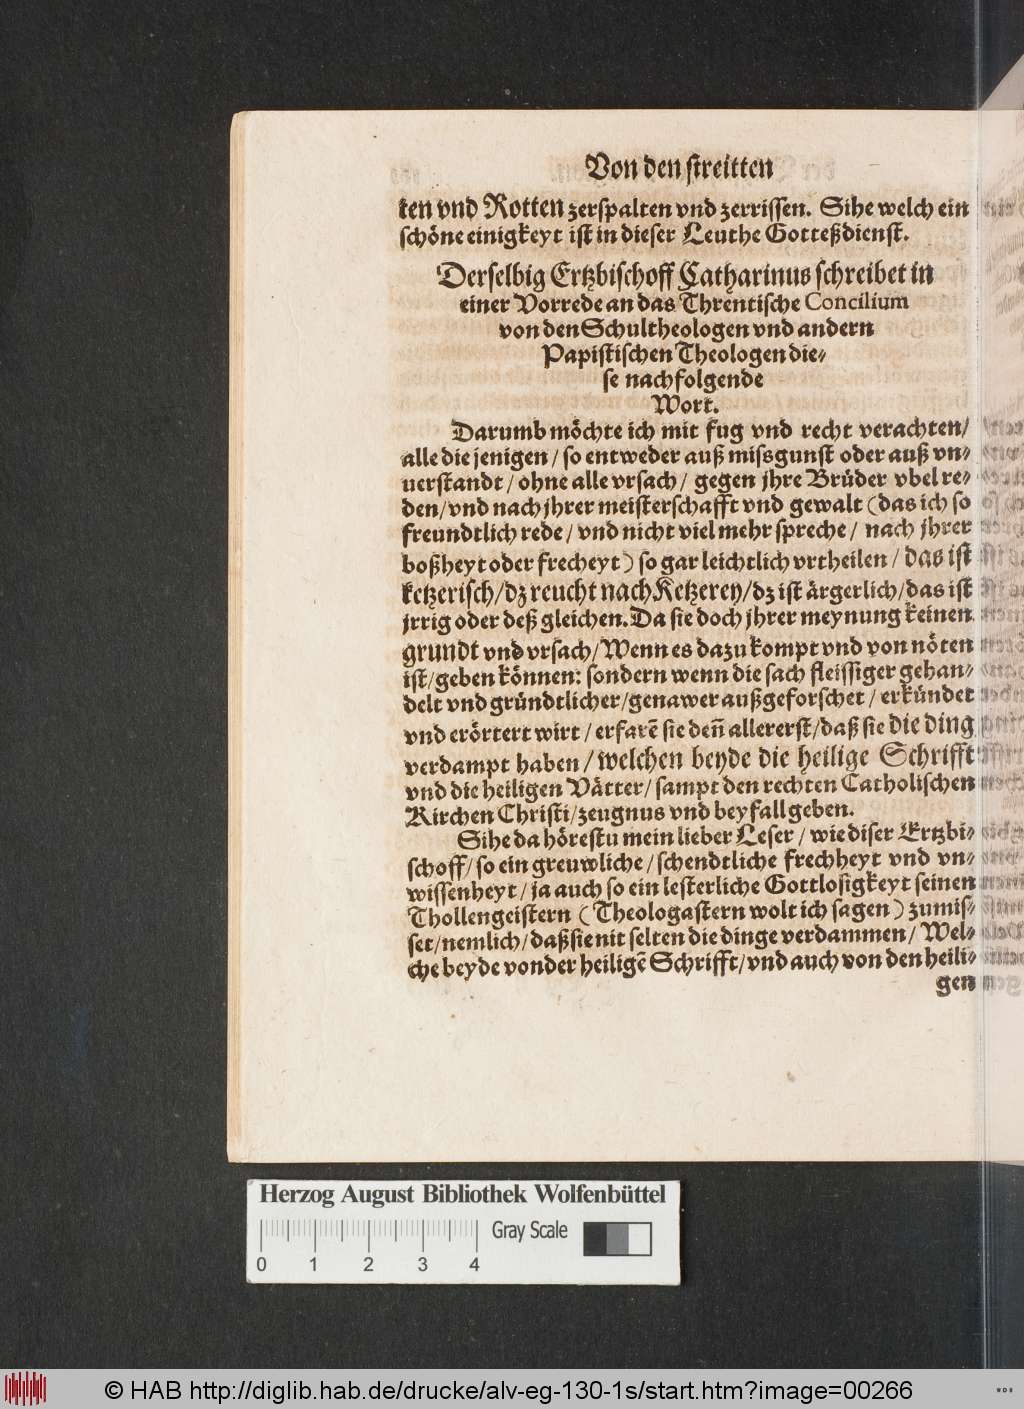 Von den ſtreitten
ken vnd Rotten zerſpalten vnd zerriſſen. Sihe welch ein
ſchöne einigkeyt iſt in dieſer Leuthe Gotteßdienſt.
Derſelbig Ertzbiſchoff Catharinus ſchreibet in
einer Vorrede an das Threntiſche Concilium
von den Schultheologen vnd andern
Papiſtiſchen Theologen die⸗
ſe nachfolgende
Wort.
Darumb möchte ich mit fug vnd recht verachten/
alle die jenigen / ſo entweder auß miſsgunſt oder auß vn⸗
uerſtandt / ohne alle vrſach / gegen jhre Brüder vbel re⸗
den/ vnd nach jhrer meiſterſchafft vnd gewalt (das ich ſo
freundtlich rede / vnd nicht viel mehr ſpreche / nach jhrer
boßheyt oder frecheyt) ſo gar leichtlich vrtheilen / das iſt
ketzeriſch/ dz reucht nach Ketzerey/ dz iſt ärgerlich/ das iſt
jrrig oder deß gleichen. Da ſie doch jhrer meynung keinen
grundt vnd vrſach/ Wenn es dazu kompt vnd von nöten
iſt/ geben können: ſondern wenn die ſach fleiſſiger gehan⸗
delt vnd gründtlicher/ genawer außgeforſchet / erkündet
vnd erörtert wirt / erfarē ſie den̄ allererſt/ daß ſie die ding
verdampt haben / welchen beyde die heilige Schrifft
vnd die heiligen Vätter/ ſampt den rechten Catholiſchen
Kirchen Chriſti/ zeugnus vnd beyfall geben.
Sihe da höreſtu mein lieber Leſer / wie diſer Ertzbi⸗
ſchoff/ ſo ein greuwliche / ſchendtliche frechheyt vnd vn⸗
wiſſenheyt / ja auch ſo ein leſterliche Gottloſigkeyt ſeinen
Thollengeiſtern (Theologaſtern wolt ich ſagen) zumiſ⸗
ſet/ nemlich/ daß ſie nit ſelten die dinge verdammen/ Wel⸗
che beyde von der heiligē Schrifft/ vnd auch von den heili⸗
gen
Herzog August Bibliothek Wolfenbüttel
Gray Scale
0 1 2 3 4
© HAB http://diglib.hab.de/drucke/alv-eg-130-1s/start.htm?image=00266